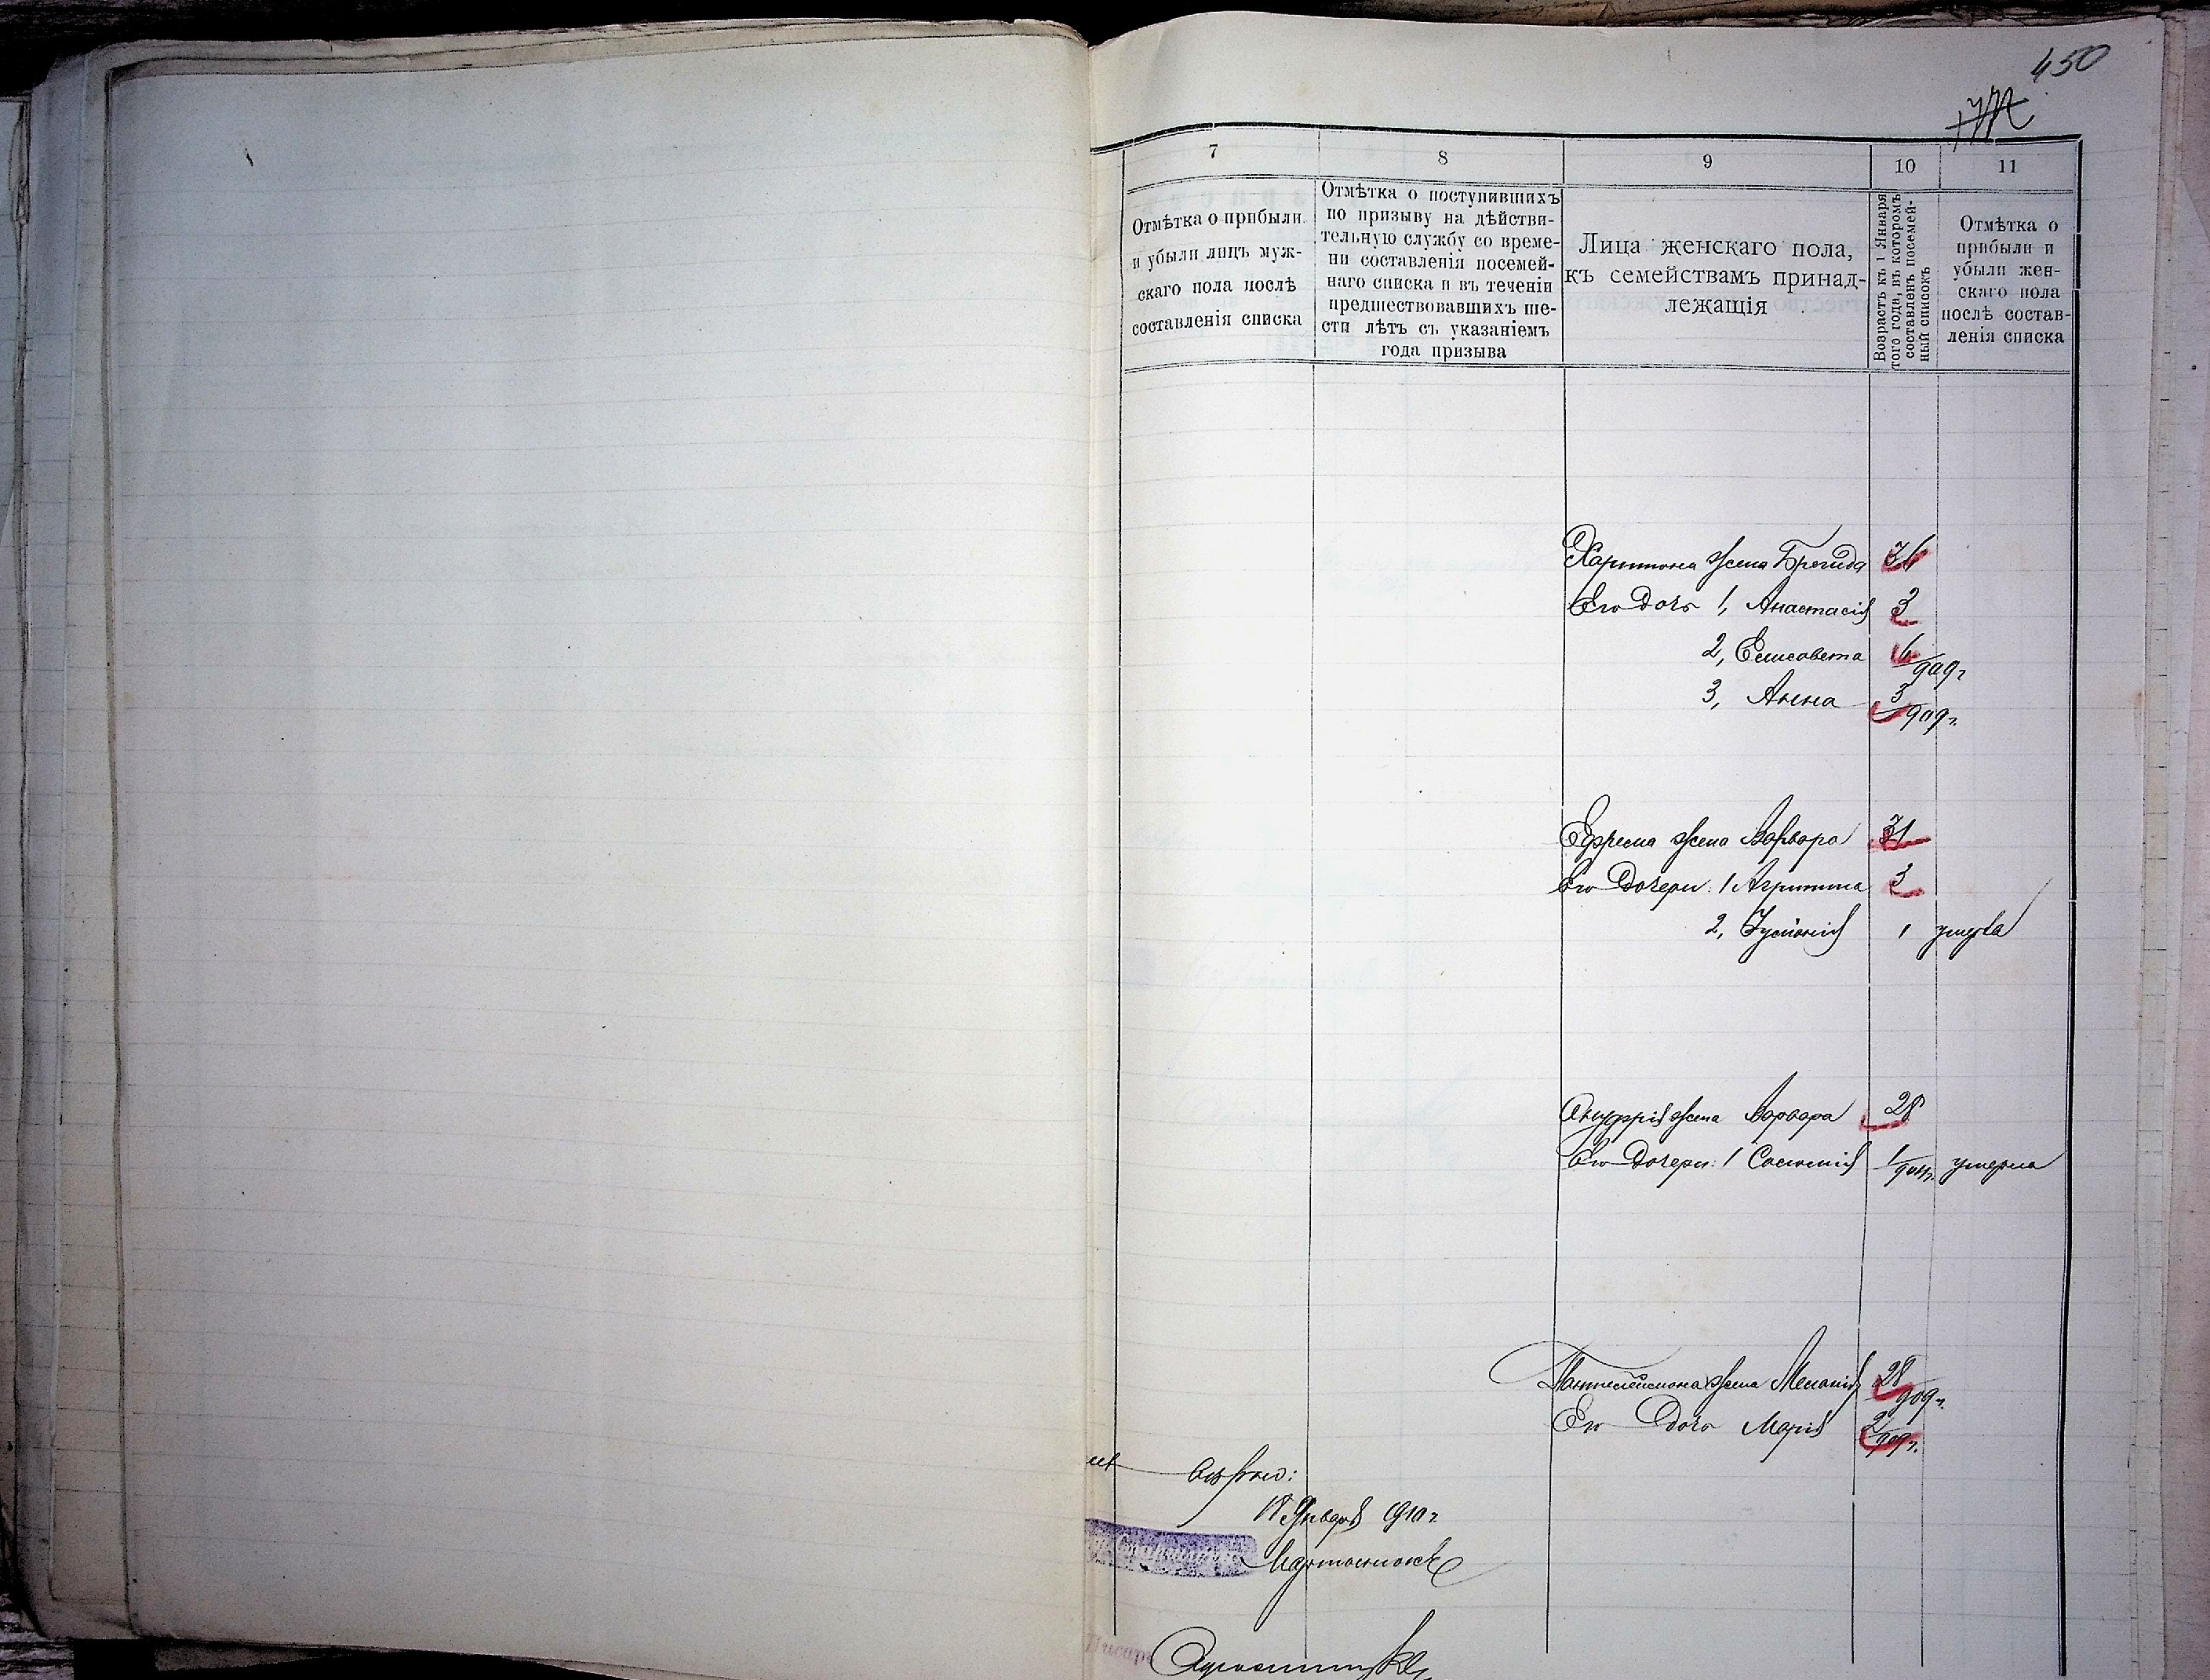 450
7
8
9
10
11
Отмѣтка о прибыли
и убыли лицъ муж-
скаго пола послѣ
составленія списка
Отмѣтка о поступившихъ
по призыву на дѣйстви-
тельную службу со време-
ни составленія посемей-
наго списка и въ теченіи
предшествовавшихъ ше-
сти лѣтъ съ указаніемъ
года призыва
Лица женскаго пола,
къ семействамъ принад-
лежащія
Возрастъ къ 1 Января
того года, въ которомъ
составленъ посемей-
ный списокъ
Отмѣтка о
прибыли и
убыли жен-
скаго пола
послѣ состав-
ленія списка
Харитона жена Брегида
Его дочь 1, Анастасія 3
2, Елисовета 909 г
3, Анна 3 909 г.
Ефрема жена Варвара 31
Его дочери: 1 Агрипина 3
2, 1 умерла
Ануфрія жена Варвара 28
Его дочери: 1 1 умерла
Пантелеймона жена Меланія 28 909 г.
Его дочь Марія 2 909 г.
вѣрно:
Января 1910 г.
Мартынюкъ
Писарь